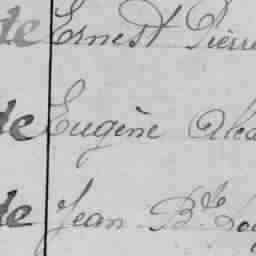 de Ernest Pierre
de Eugène
de Jean-Bte